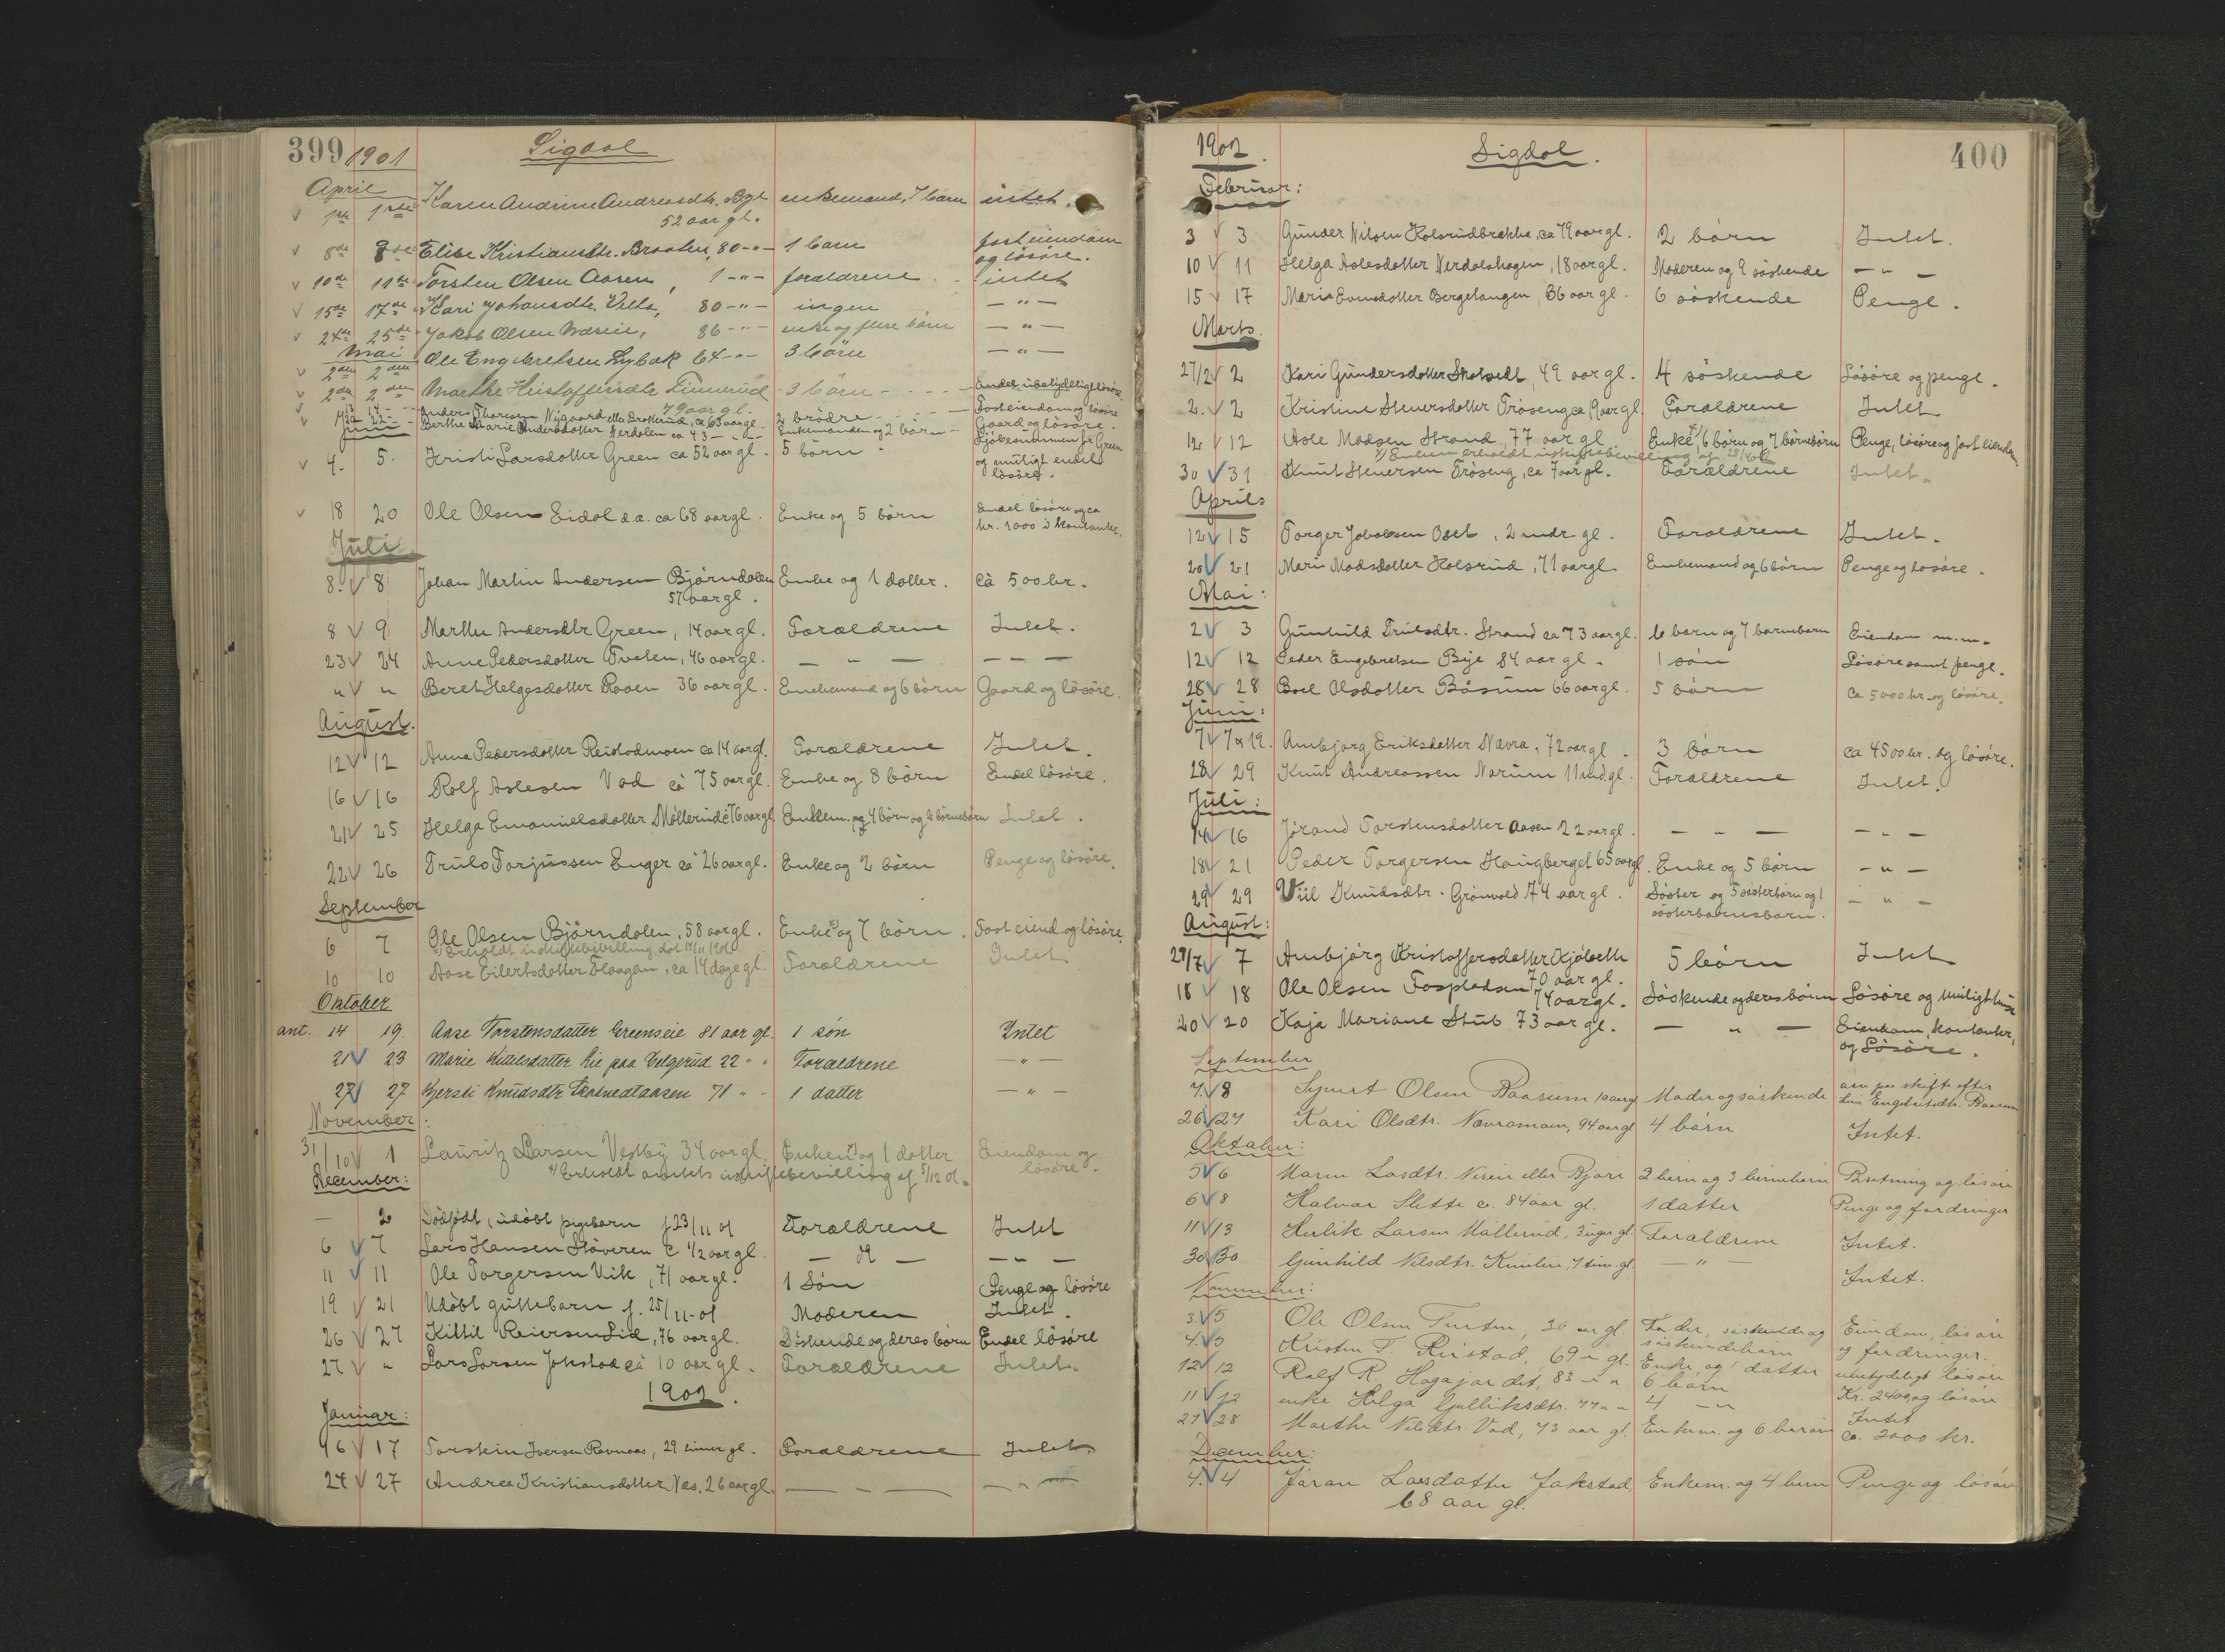 399 1901 Sigdal
April
1ste 1ste Karen Andrine Andreasdtr. enkemand, 7 børn intet.
52 aar gl.
8de 8de Elise Kristiansdtr. Braaten, 80 -"- 1 barn fast eiendom
og løsøre.
10de 11te Torsten Olsen Aasen, 1 -"- forældrene intet
15de 17de Kari Johansdtr. 80 -"- ingen -"-
24de 25de Jakob Olsen 86 -"- enke og flere børn -"-
Mai
2den 2den Ole Engebretsen Lybæk 64 -"- 3 børn -"-
2den 2den Marthe Kristoffersdtr. 3 børn Endel ubetydelig løsøre.
79 aar gl.
Anders Thoresen Nygaard eller Bratterud, ca 65 aar gl. 2 brødre Fast eiendom og løsøre
22 Berthe Marie Andersdatter Nerdalen ca 43 -"- Enkemanden og 2 børn Gaard og løsøre.
Juni
4. 5. Kristi Larsdatter Green ca 52 aar gl. 5 børn Kjøbesummen for Green
og muligt endel
løsøre.
18 20 Ole Olsen Eidal d.æ. ca 68 aar gl. Enke og 5 børn Endel løsøre og ca
kr. 1000 i kontanter.
Juli
8. 8 Johan Martin Andersen Bjørndalen Enke og 1 datter. Ca 500 kr.
57 aar gl.
8 9 Marthe Andersdtr Green, 14 aar gl. Forældrene Intet.
23 24 Anne Pedersdatter Tveten, 46 aar gl. — " — — " —
" " Beret Helgesdatter Roen 36 aar gl. Enkemand og 6 børn Gaard og løsøre.
August.
12 12 Anna Pedersdatter Reistadmoen ca 14 aar gl. Forældrene Intet.
16 16 Rolf Aslesen Vad ca 75 aar gl. Enke og 8 børn Endel løsøre.
21 25 Helga Emanielsdatter Møllerud c 76 aar gl. Enkem. og 4 børn og 2 børnebørn Intet.
22 26 Truls Torjussen Enger ca 26 aar gl. Enke og 2 børn Penge og løsøre.
September
6 7 Ole Olsen Bjørndalen, 58 aar gl. Enke x) og 7 børn. Fast eiend. og løsøre.
x) Erholdt uskiftebevilling dat 14/11 1901
10 10 Aase Eilertsdatter Flaagan, ca 14 dage gl. Forældrene Intet
Oktober
ant. 14 19. Aase Torstensdatter Greenseie 81 aar gl. 1 søn Intet
21 23 Marie Kittilsdatter Lie paa Velgerud 22 " " Forældrene — " —
27 27 Kjersti Knudsdtr 71 " " 1 datter — " —
November:
31/10 1 Lauritz Larsen Vestby 34 aar gl. Enken x) og 1 datter Eiendom og
løsøre.
x) Erholdt amtets uskiftebevilling af 5/12 01.
December:
— 2 Dødfødt, udøbt pigebarn f 23/11 01 Forældrene Intet
6 7 Lars Hansen Støveren c 1/2 aar gl. — " — — " —
11 11 Ole Torgersen Vik, 71 aar gl. 1 Søn Penge og løsøre
19 21 Udøbt guttebarn f. 25/11-01 Moderen Intet.
26 27 Kittil Reiersen Lid, 76 aar gl. Søskende og deres børn Endel løsøre
27 " Lars Larsen Jokstad ca 10 aar gl. Forældrene Intet.
1902.
Januar:
16 17 Torstein Iversen Ravnaas, 29 timer gl. Forældrene Intet.
24 27 Andrea Kristiansdatter Næs, 26 aar gl. — " — — " —
1902. Sigdal. 400
Februar:
3 3 Gunder Nilsen Kolsrudbrække, ca 79 aar gl. 2 børn Intet.
10 11 Helga Aslesdatter Nerdalshagen, 18 aar gl. Moderen og 9 søskende — " —
15 17 Maria Evensdatter Bergetangen, 36 aar gl. 6 søskende Penge.
Marts.
27/2 2 Kari Gundersdatter 49 aar gl. 4 søskende Løsøre og penge.
2. 2 Kristine Steuersdatter Frøseng ca 9 aar gl. Forældrene Intet
12 12 Asle Madsen Strand, 77 aar gl. Enke x), 6 børn og 7 børnebørn Penge, løsøre og fast eiendom.
x) Enken erholdt uskiftebevilling af
30 31 Knut Steuersen Frøseng, ca 7 aar gl. Forældrene Intet.
April:
12 15 Torger Jakobsen 2 mdr. gl. Forældrene Intet.
20 21 Mari Madsdatter Kolsrud, 71 aar gl. Enkemand og 6 børn Penge og løsøre.
Mai:
2 3 Gunhild Trulsdtr. Strand ca 73 aar gl. 6 børn og 7 børnebørn Eiendom m.m.
12 12 Peder Engebretsen Bye 84 aar gl. 1 søn Løsøre samt penge.
28 28 Boel Olsdatter Båsum 66 aar gl. 5 børn Ca 5000 kr. og løsøre.
Juni:
7 7 & 19. Ambjørg Eriksdatter Nævra, 72 aar gl. 3 børn Ca 4500 kr. og løsøre.
28 29 Knut Andreassen Narum 11 md. gl. Forældrene Intet.
Juli:
14 16 Jørand Torstensdatter Aasen 22 aar gl. — " — — " —
18 21 Peder Torgersen Haugberget 65 aar gl. Enke og 5 børn — " —
29 29 Viil Knudsdtr. Grønvold 74 aar gl. Søster og 5 søsterbørn og 1
søsterbarnsbarn. — " —
August:
29/7 7 Ambjørg Kristoffersdatter 5 børn Intet
70 aar gl.
18 18 Ole Olsen Fospladsen 74 aar gl. Søskende og deres børn Løsøre og muligt hus
20 20 Kaja Mariane Stub 73 aar gl. — " — Eiendom, kontanter,
og Løsøre.
September
7. 8 Syvert Olsen Baasum 10 aar gl Moder og søskende arv paa skifte efter
Engebretsdtr. Baasum
26. 27 Kari Olsdtr. Nævramoen, 94 aar gl 4 børn Intet.
Oktober:
5 6 Maren Larsdtr. eller Bjøre 2 børn og 3 børnebørn Bræsetning og løsøre
6 8 Halvar Slette c. 84 aar gl. 1 datter Penge og fordringer
11 13 Herlik Larsen Møllerud, 3 uger gl. Forældrene Intet.
30 30 Gunhild Nilsdtr. 7 tim. gl. — " — Intet.
November:
3. 5 Ole Olsen 30 aar gl. Fader, søskende og
søskendebarn Eiendom, løsøre
og fordringer.
4. 5 Kristen T. Reistad, 69 - gl. Enke og 1 datter ubetydeligt løsøre
12 12 Rolf R. Hagajordet, 83 - " 6 børn Kr. 2400 og løsøre
11 12 enke Helga Gulliksdtr. 77 " " 4 - " Intet
27 28 Marthe Nilsdtr. Vad, 73 aar gl. Enkem. og 6 børn Ca. 2000 kr.
December:
4. 4 Jøran Larsdatter Jokstad, Enkem. og 4 børn Penge og løsøre
68 aar gl.